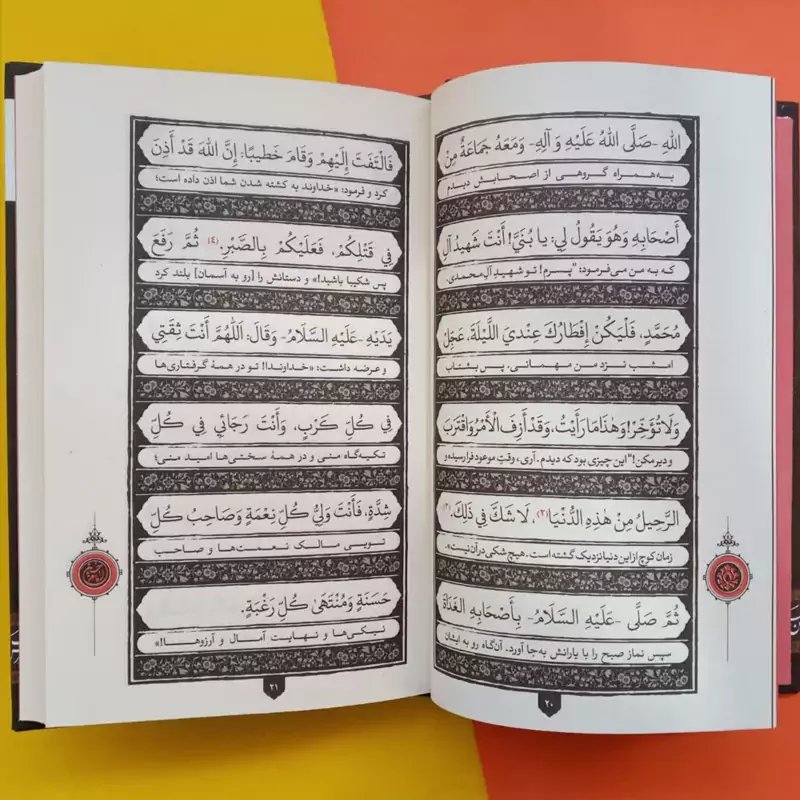 اللهِ -صَلَّى اللهُ عَلَيْهِ وَ آلِهِ- وَمَعَهُ جَمَاعَةٌ مِنْ
به‌همراه گروهی از اصحابش دیدم
أَصْحَابِهِ وَهُوَ يَقُولُ لِي: يا بُنَيَّ! أَنْتَ شَهِيدُ آلِ
که به من می‌فرمود: "پسرم! تو شهیدِ آلِ محمدی.
مُحَمَّدٍ، فَلْيَكُنْ إِفْطَارُكَ عِنْدِيَ اللَّيْلَةَ، عَجِّلْ
امشب نزد من مهمانی، پس بشتاب
وَلَا تُؤَخِّرْ! وَهٰذَا مَا رَأَيْتُ، وَقَدْ أَزِفَ الْأَمْرُ وَاقْتَرَبَ
و دیر مکن!" این چیزی بود که دیدم. آری، وقتِ موعود فرارسیده و
الرَّحِيلُ مِنْ هٰذِهِ الدُّنْيَا(٢)، لَا شَكَّ فِي ذٰلِكَ.(٣)
زمان کوچ از این دنیا نزدیک گشته است، هیچ شکی در آن نیست».
ثُمَّ صَلَّى -عَلَيْهِ السَّلَامُ- بِأَصْحَابِهِ الْغَدَاةَ
سپس نماز صبح را با یارانش به‌جا آورد. آن‌گاه رو به ایشان
۲۰
فَالْتَفَتَ إِلَيْهِمْ وَقَامَ خَطِيبًا: إِنَّ اللهَ قَدْ أَذِنَ
کرد و فرمود: «خداوند به کشته شدن شما اذن داده است؛
فِي قَتْلِكُمْ، فَعَلَيْكُمْ بِالصَّبْرِ.(٤) ثُمَّ رَفَعَ
پس شکیبا باشید!» و دستانش را [رو به آسمان] بلند کرد
يَدَيْهِ -عَلَيْهِ السَّلَامُ- وَقَالَ: اَللّٰهُمَّ أَنْتَ ثِقَتِي
و عرضه داشت: «خداوندا! تو در همهٔ گرفتاری‌ها
فِي كُلِّ كَرْبٍ، وَأَنْتَ رَجَائِي فِي كُلِّ
تکیه‌گاه منی و در همهٔ سختی‌ها امید منی؛
شِدَّةٍ، فَأَنْتَ وَلِيُّ كُلِّ نِعْمَةٍ وَصَاحِبُ كُلِّ
تویی مالک نعمت‌ها و صاحب
حَسَنَةٍ وَمُنْتَهَىٰ كُلِّ رَغْبَةٍ.
نیکی‌ها و نهایت آمال و آرزوها!»
۲۱